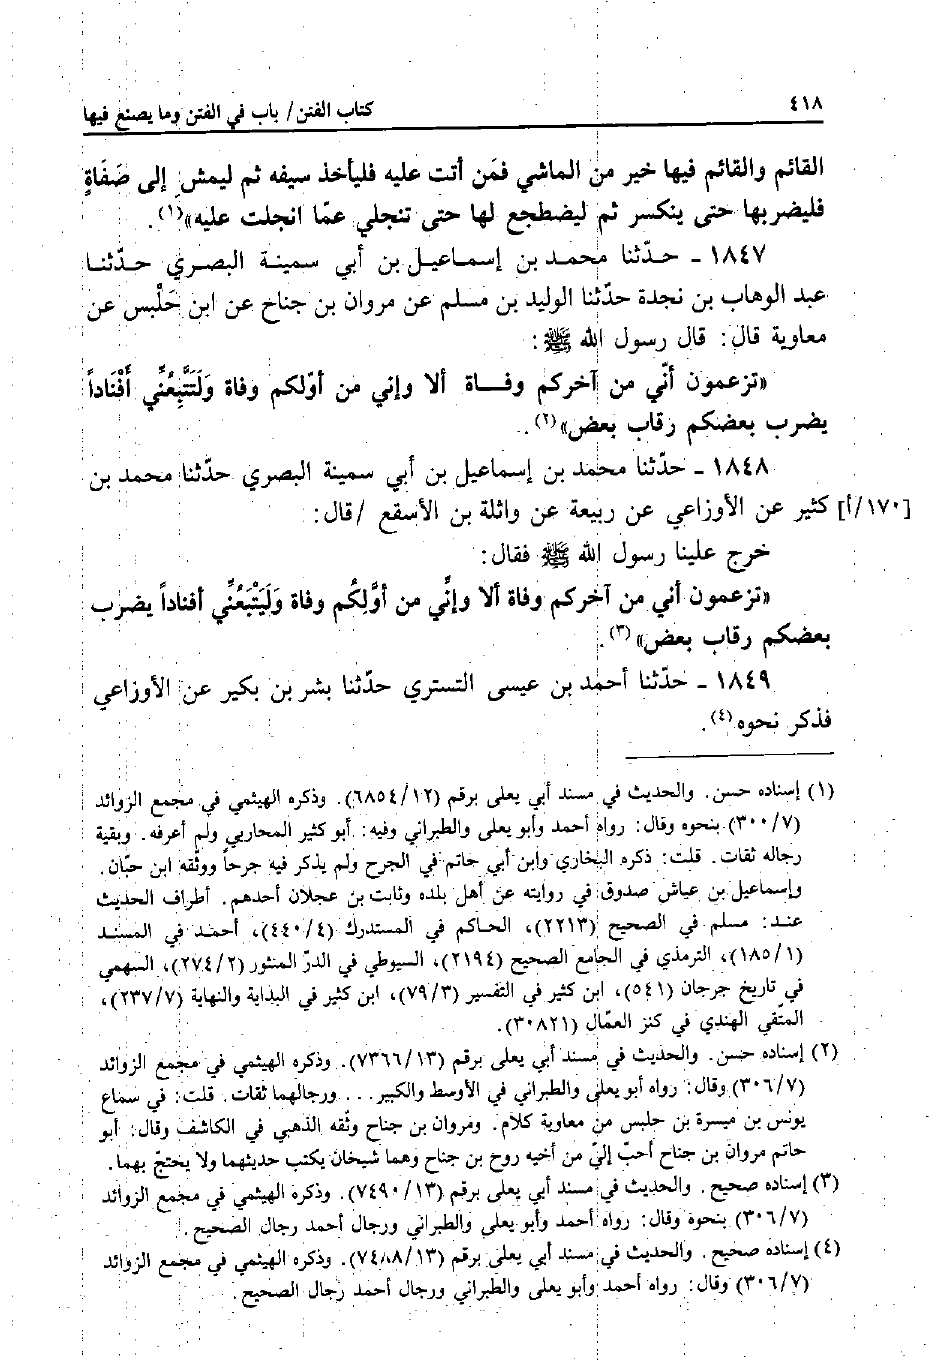 ٤١٨
كتاب الفتن/ باب في الفتن وما يصنع فيها
القائم والقائم فيها خير من الماشي فمَن أتت عليه فليأخذ سيفه ثم ليمشِ إلى صَفَاةٍ
فليضربها حتى ينكسر ثم ليضطجع لها حتى تنجلي عمّا انجلت عليه»(١).
١٨٤٧ - حدّثنا محمد بن إسماعيل بن أبي سمينة البصري حدّثنا
عبد الوهاب بن نجدة حدّثنا الوليد بن مسلم عن مروان بن جناح عن ابن حَلْبس عن
معاوية قال: قال رسول الله ﷺ:
«تزعمون أنّي من آخركم وفاة ألا وإني من أوّلكم وفاة وَلَتَتَّبِعُنَّي أَفْنَاداً
يضرب بعضكم رقاب بعض»(٢).
١٨٤٨ - حدّثنا محمد بن إسماعيل بن أبي سمينة البصري حدّثنا محمد بن
[١٧٠/أ] كثير عن الأوزاعي عن ربيعة عن واثلة بن الأسقع /قال:
خرج علينا رسول الله ﷺ فقال:
«تزعمون أني من آخركم وفاة ألا وإنَّي من أوَّلِكُم وفاة وَلَيَتْبَعُنَّي أفناداً يضرب
بعضكم رقاب بعض»(٣).
١٨٤٩ - حدّثنا أحمد بن عيسى التستري حدّثنا بشر بن بكير عن الأوزاعي
فذكر نحوه(٤).
(١) إسناده حسن. والحديث في مسند أبي يعلى برقم (٦٨٥٤/١٢). وذكره الهيثمي في مجمع الزوائد
(٣٠٠/٧) بنحوه وقال: رواه أحمد وأبو يعلى والطبراني وفيه: أبو كثير المحاربي ولم أعرفه. وبقية
رجاله ثقات. قلت: ذكره البخاري وابن أبي حاتم في الجرح ولم يذكر فيه جرحاً ووثّقه ابن حبّان.
وإسماعيل بن عياش صدوق في روايته عن أهل بلده وثابت بن عجلان أحدهم. أطراف الحديث
عند: مسلم في الصحيح (٢٢١٣)، الحاكم في المستدرك (٤٤٠/٤)، أحمد في المسند
(١٨٥/١)، الترمذي في الجامع الصحيح (٢١٩٤)، السيوطي في الدرّ المنثور (٢٧٤/٢)، السهمي
في تاريخ جرجان (٥٤١)، ابن كثير في التفسير (٧٩/٣)، ابن كثير في البداية والنهاية (٢٣٧/٧)،
المتّقي الهندي في كنز العمّال (٣٠٨٢١).
(٢) إسناده حسن. والحديث في مسند أبي يعلى برقم (٧٣٦٦/١٣). وذكره الهيثمي في مجمع الزوائد
(٣٠٦/٧) وقال: رواه أبو يعلى والطبراني في الأوسط والكبير... ورجالهما ثقات. قلت: في سماع
يونس بن ميسرة بن حلبس من معاوية كلام. ومروان بن جناح وثّقه الذهبي في الكاشف وقال: أبو
حاتم مروان بن جناح أحبّ إليّ من أخيه روح بن جناح وهما شيخان يكتب حديثهما ولا يحتجّ بهما.
(٣) إسناده صحيح. والحديث في مسند أبي يعلى برقم (٧٤٩٠/١٣). وذكره الهيثمي في مجمع الزوائد
(٣٠٦/٧) بنحوه وقال: رواه أحمد وأبو يعلى والطبراني ورجال أحمد رجال الصحيح.
(٤) إسناده صحيح. والحديث في مسند أبي يعلى برقم (٧٤٨٨/١٣). وذكره الهيثمي في مجمع الزوائد
(٣٠٦/٧) وقال: رواه أحمد وأبو يعلى والطبراني ورجال أحمد رجال الصحيح.